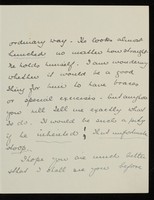 ordinary way. He looks almost
hunched no matter how straight
he holds himself. I am wondering
whether it would be a good
thing for him to have braces
or special exercises - but anyhow
you will tell me exactly what
to do. It would be such a pity
if he inherited that unfortunate
stoop.
I hope you are much better
that I shall see you before